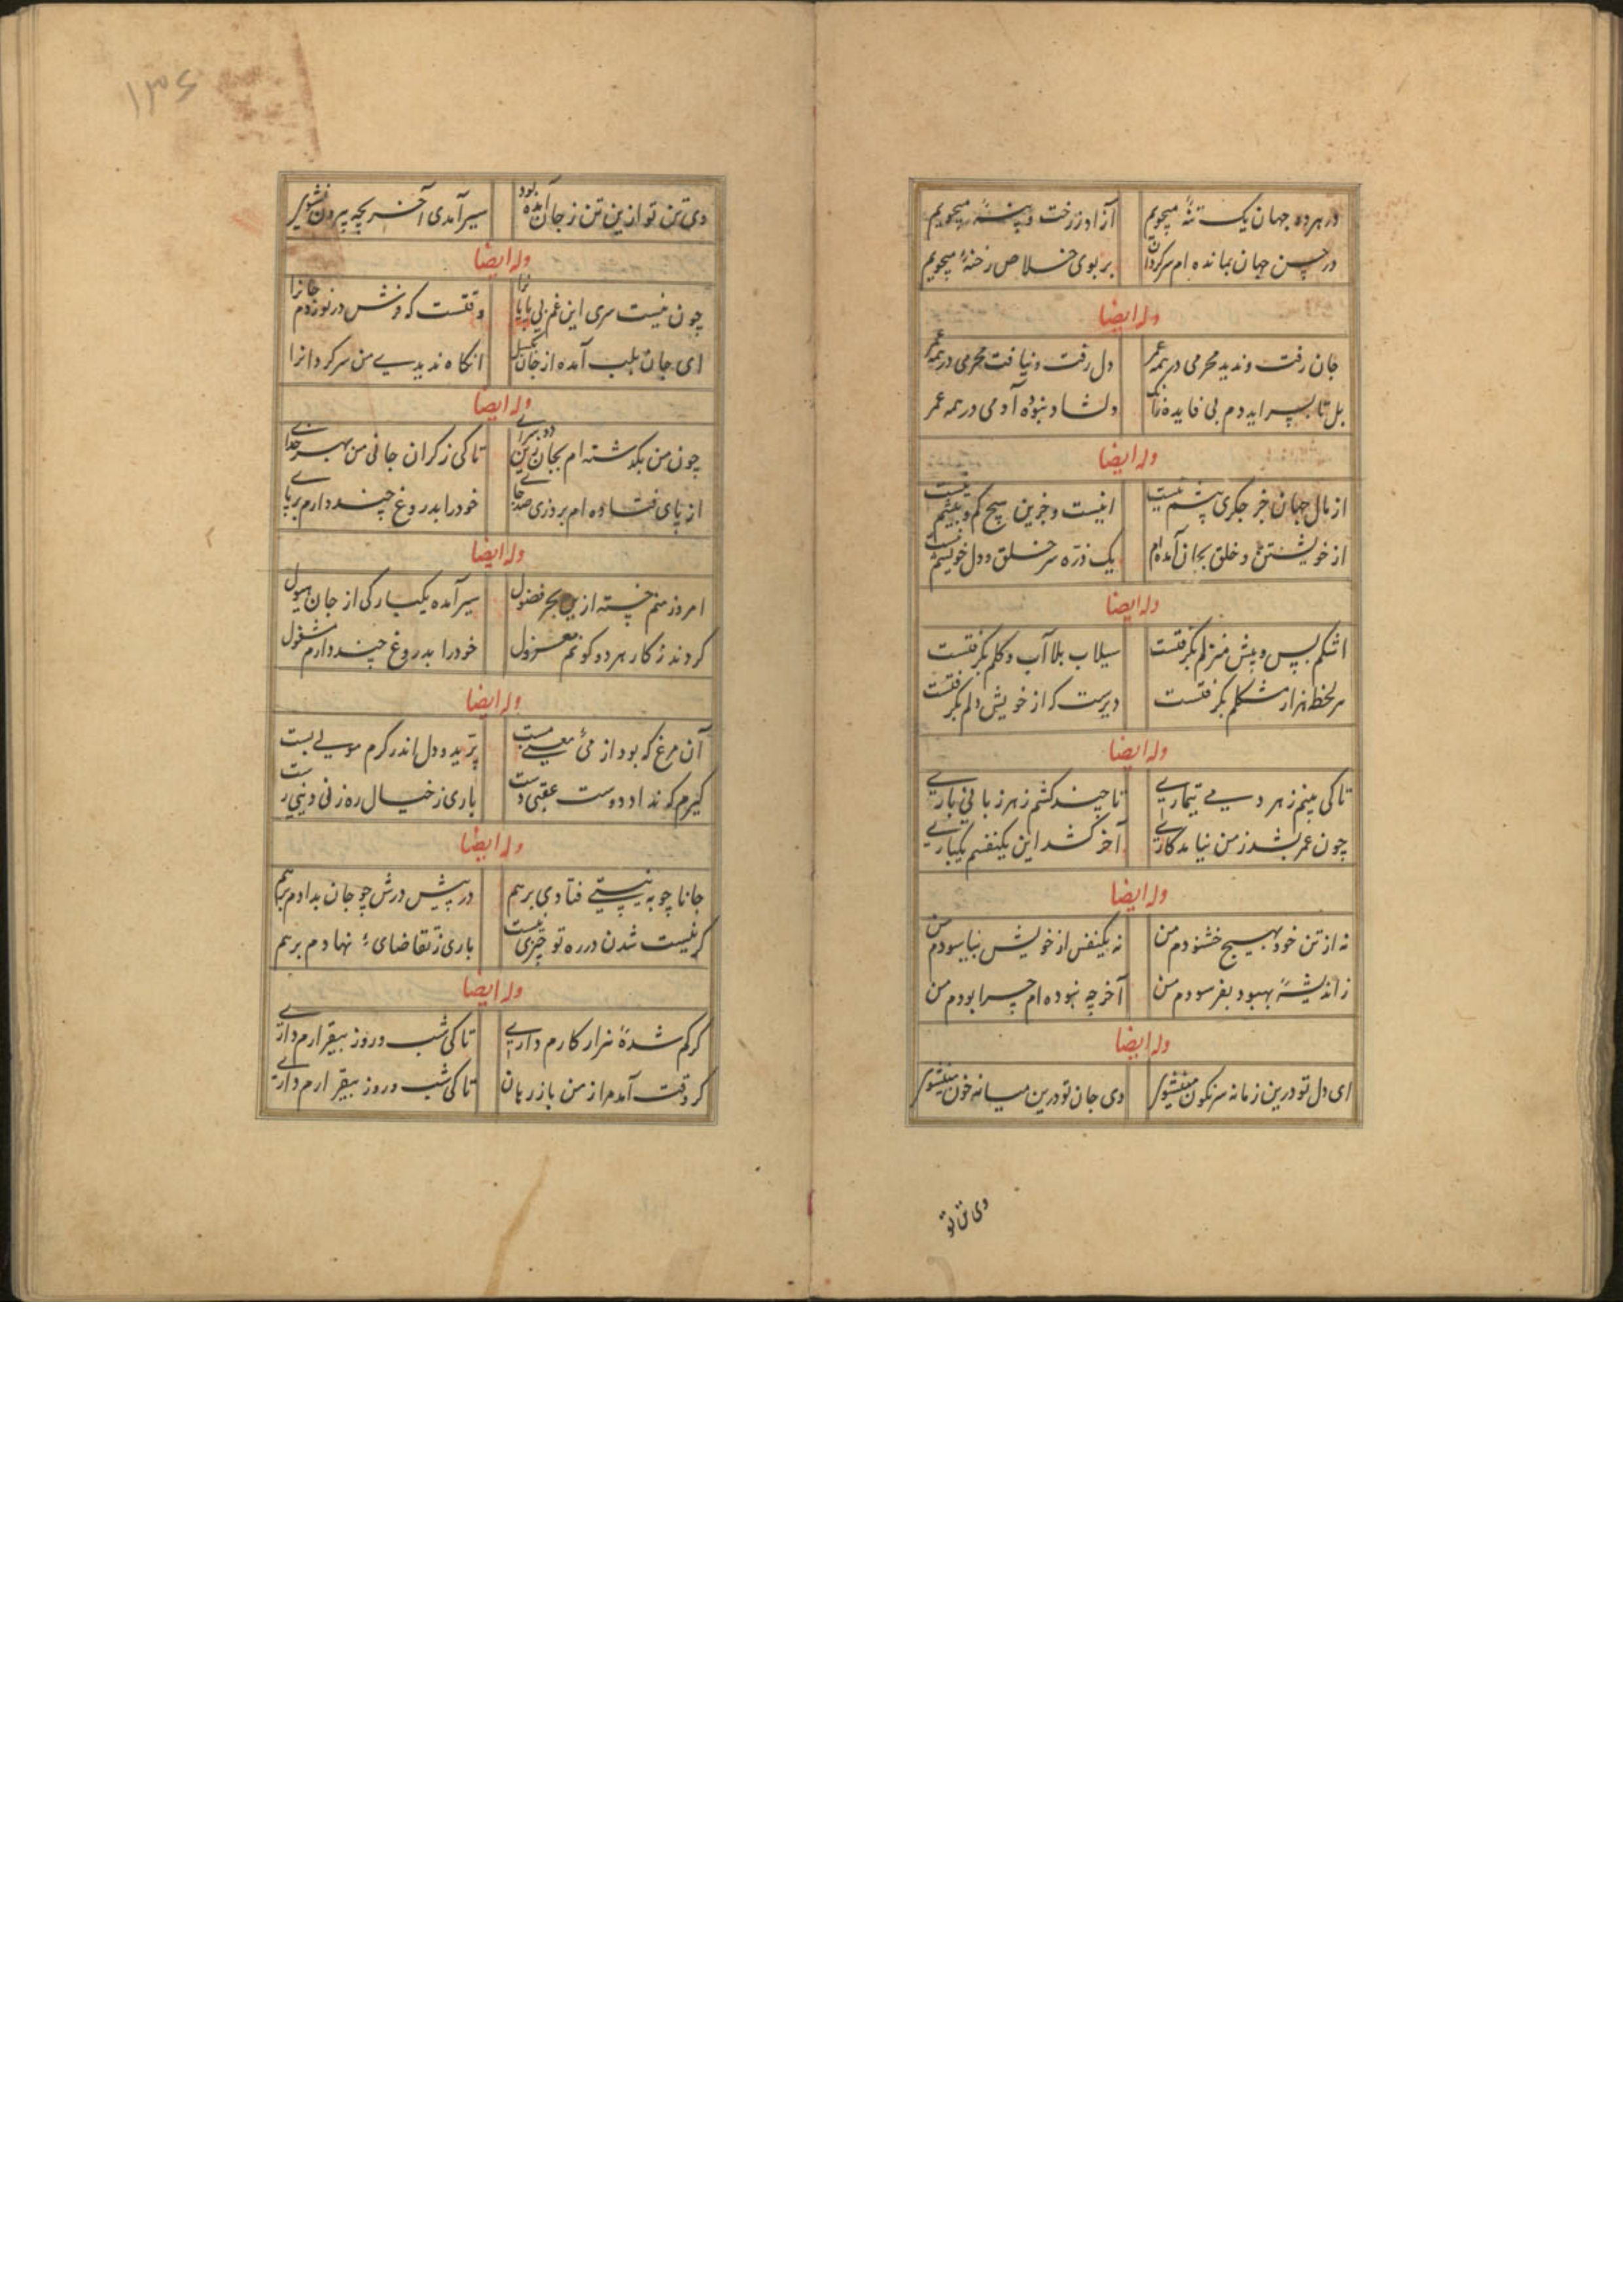 در هر ده جهان یک تنهٔ میجویم آزاد ز رخت و پنبهٔ میجویم
در جهان بمانده ام سرکردان بر بوی خلاص رخنهٔ میجویم
وله ایضا
جان رفت و ندید محرمی در همه عمر دل رفت و نیافت محرمی در همه عمر
دلشاد نبوده آدمی در همه عمر
وله ایضا
از مال جهان جز جکری نیست اینیست و جزین هیچ کم و بیشم نیست
از خویشتن و خلق بجان آمده‌ام یک ذره سر خلق و دل خویشم نیست
وله ایضا
اشکم پس و پیش منزلم بگرفتست سیلاب بلا آب و کلم بگرفتست
هر لحظه هزار مشکلم بگرفتست دیرست که از خویش دلم بگرفتست
وله ایضا
تا کی بینم ز هر دمی تیماری تا چند کشم ز هر زبانی باری
چون عمر بشد ز من نیامد کاری آخر کشد این یکنفسم یکباری
وله ایضا
نه از تن خود بهیچ خشنودم من نه یکنفس از خویش نیاسودم من
ز اندیشهٔ بهبود بفرسودم من آخر چه نبوده‌ام چرا بودم من
وله ایضا
ای دل تو درین زمانه سرنکون می‌نشوی وی جان تو درین میانه خون می‌نشوی
وی تن تو
۱۳۶
وی تن تو ازین تن ز جان آمده بود سیر آمدی آخر بچه بیرون نشوی
وله ایضا
چون نیست سری این غم بی پایانرا وقتست که فرش در نوردم جانرا
ای جان بلب آمده از جان انکاه ندیدی من سرکردانرا
وله ایضا
چون من بکذشته ام بجان زین دو سرای تا کی ز کران جانی من بهر خدای
از پای فتاده ام بروزی صد جای خود را بدروغ چند دارم بر پای
وله ایضا
امروز منم خسته ازین بحر فضول سیر آمده یکبارکی از جان ملول
کردند ز کار هر دو کونم معزول خود را بدروغ چند دارم مشغول
وله ایضا
آن مرغ که بود از می معنی مست پرید و دل اندر کرم مولی بست
کیرم که نداد دوست عقبی دست باری ز خیال ره زنی دنیی رست
وله ایضا
جانا چو به نیستی فتادی برهم در پیش درش چو جان بدادم برهم
کر نیست شدن در ره تو چیزی نیست باری ز تقاضای نهادم برهم
وله ایضا
کر کم شدهٔ هزار کارم داری تا کی شب و روز بیقرارم داری
کر وقت آمد مرا ز من باز رهان تا کی شب و روز بیقرارم داری